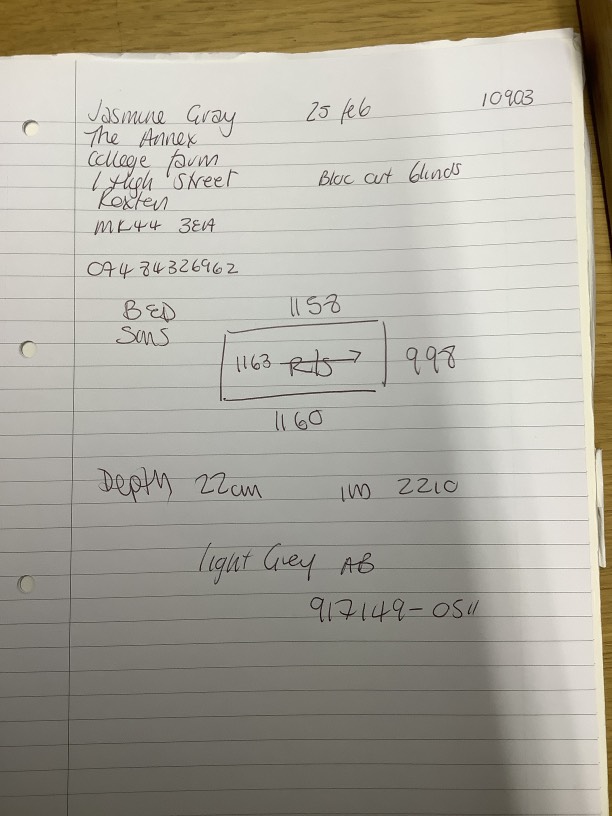 Jasmine Gray 25 feb 10903
The Annex
College farm
1 High Street Bloc out blinds
Roxten
MK44 3EA
07484326962
BED 1158
Sons
1163 R/s → 998
1160
Depth 22cm im 2210
light Grey AB
917149-0511